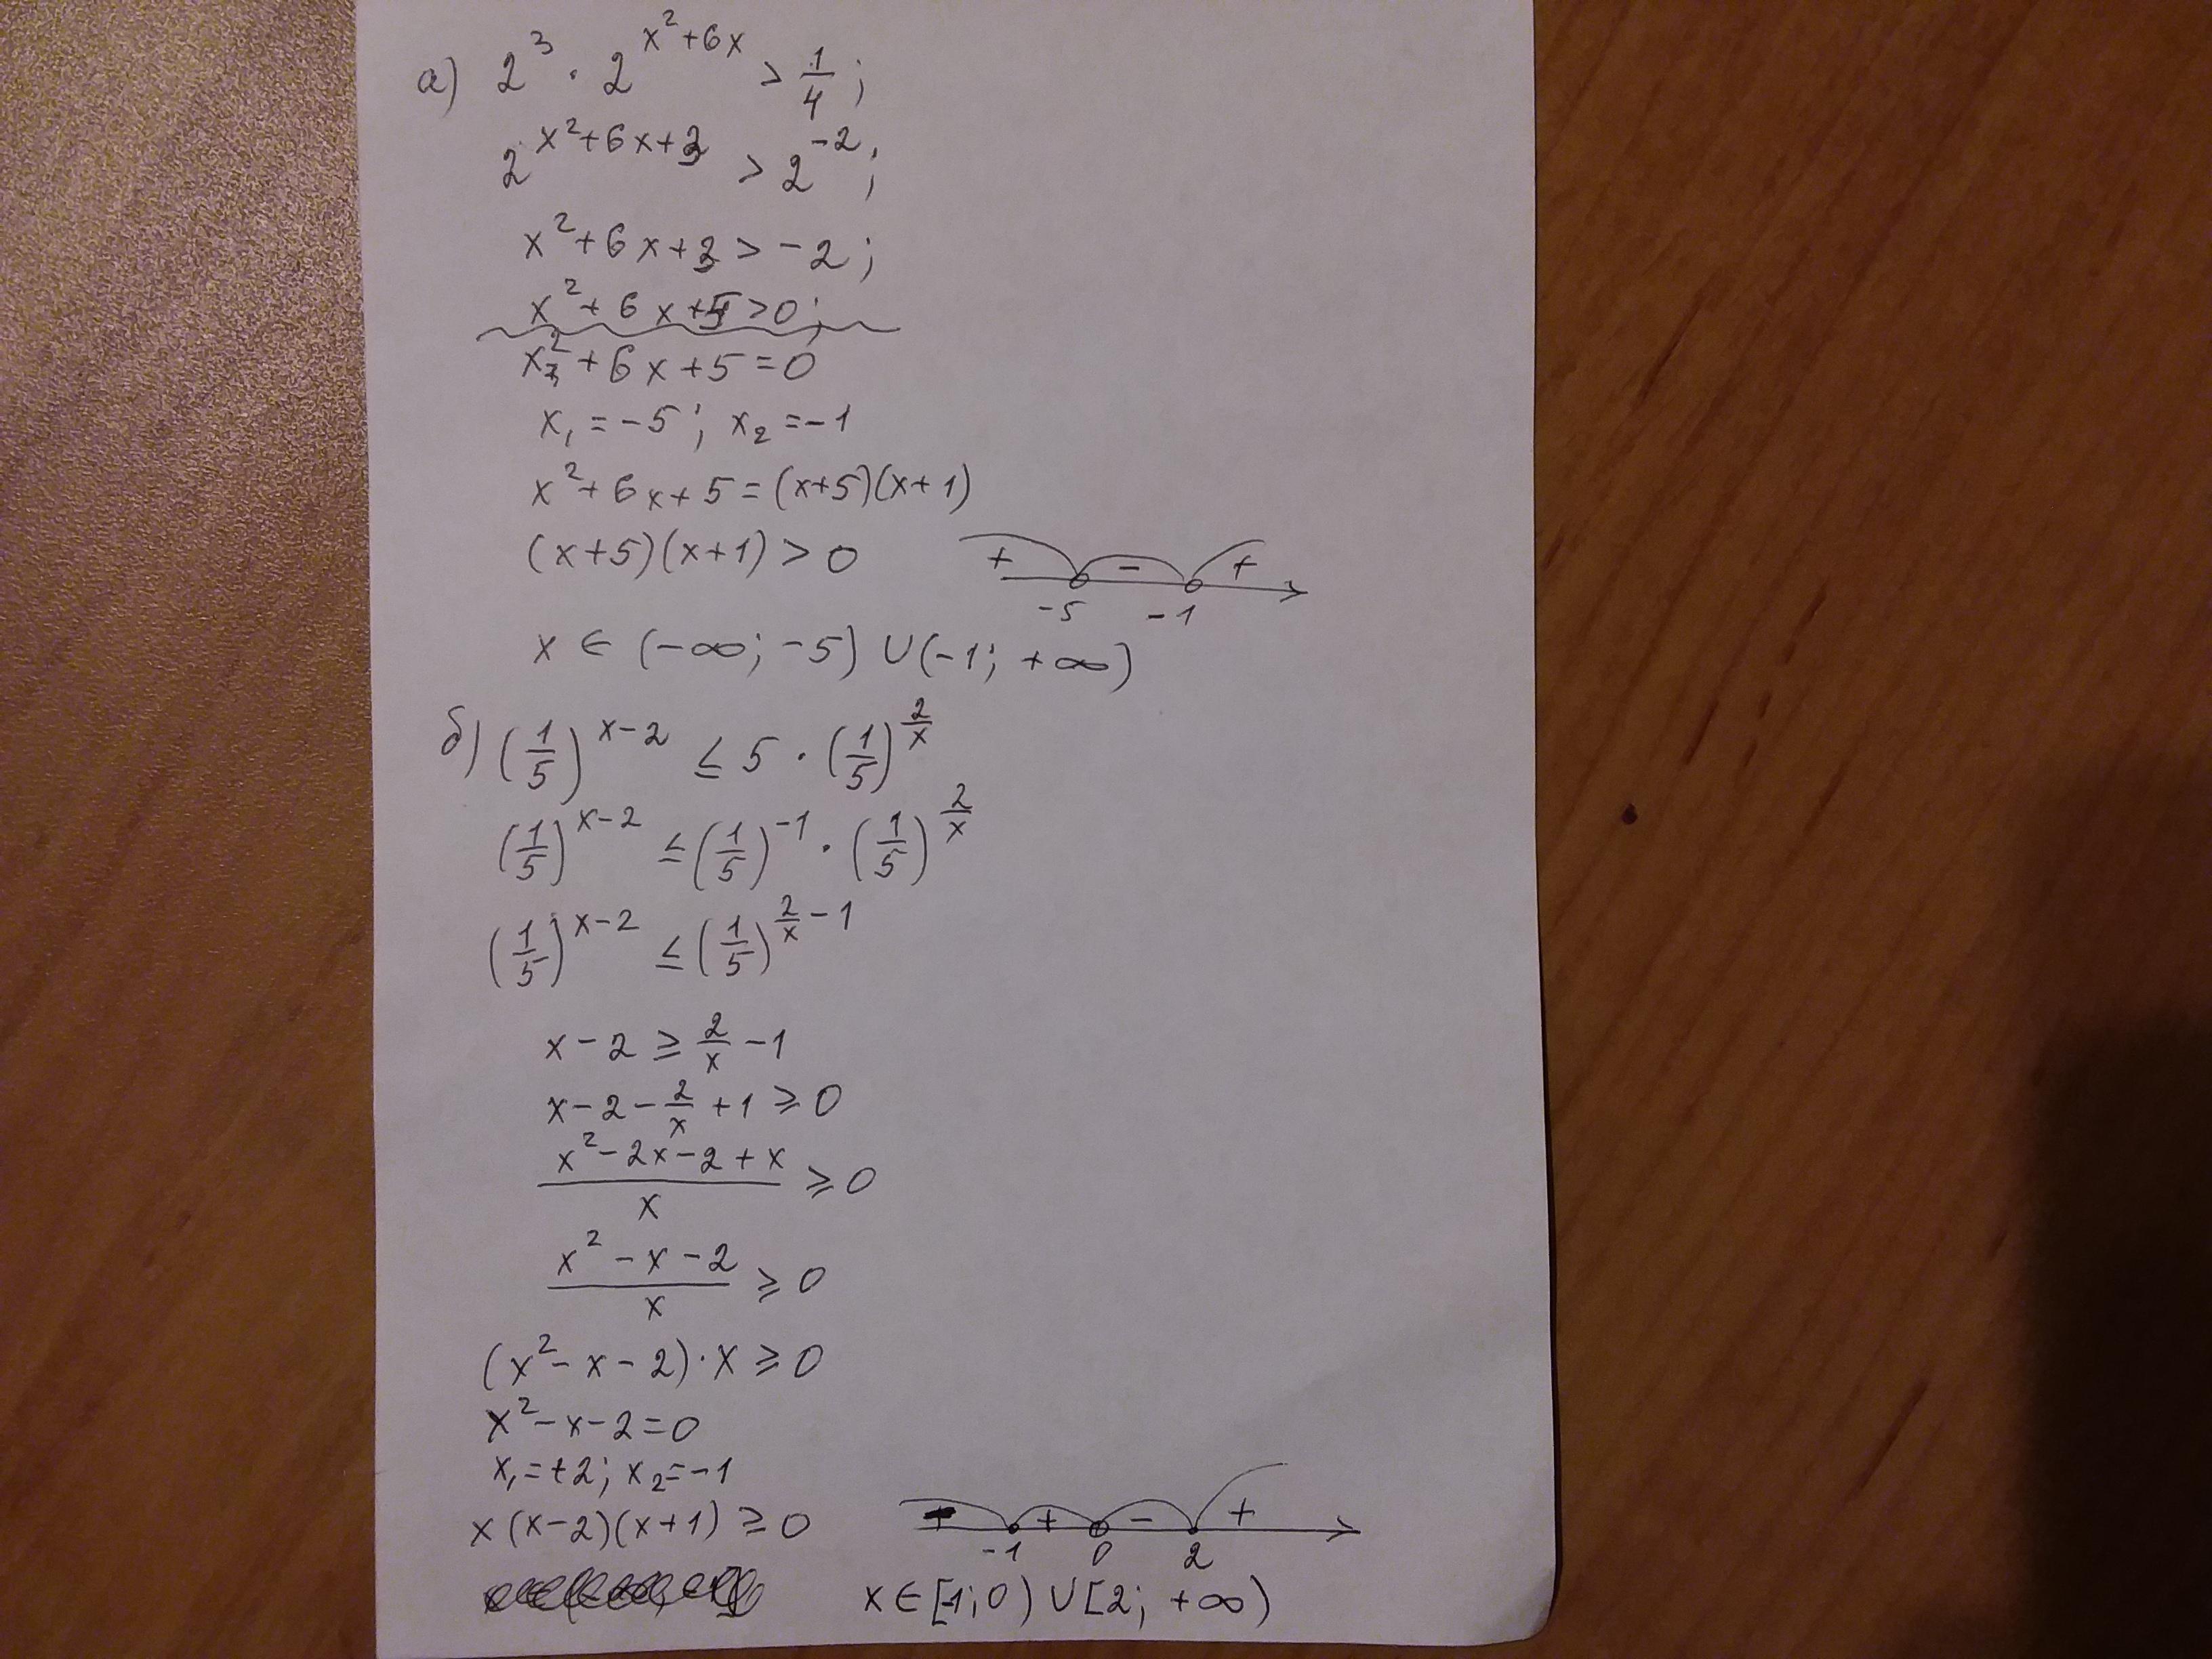 а) 2³ · 2^(x²+6x) > 1/4;
2^(x²+6x+3) > 2^(-2);
x²+6x+3 > -2;
x²+6x+5 > 0;
x²+6x+5=0
x₁ = -5; x₂ = -1
x²+6x+5 = (x+5)(x+1)
(x+5)(x+1) > 0
+ - +
-5 -1
x ∈ (-∞; -5) ∪ (-1; +∞)
б) (1/5)^(x-2) ≤ 5 · (1/5)^(2/x)
(1/5)^(x-2) ≤ (1/5)^(-1) · (1/5)^(2/x)
(1/5)^(x-2) ≤ (1/5)^(2/x - 1)
x-2 ≥ 2/x - 1
x-2-2/x+1 ≥ 0
(x²-2x-2+x)/x ≥ 0
(x²-x-2)/x ≥ 0
(x²-x-2)·x ≥ 0
x²-x-2=0
x₁=+2; x₂=-1
x(x-2)(x+1) ≥ 0
- + - +
-1 0 2
x ∈ [-1; 0) ∪ [2; +∞)